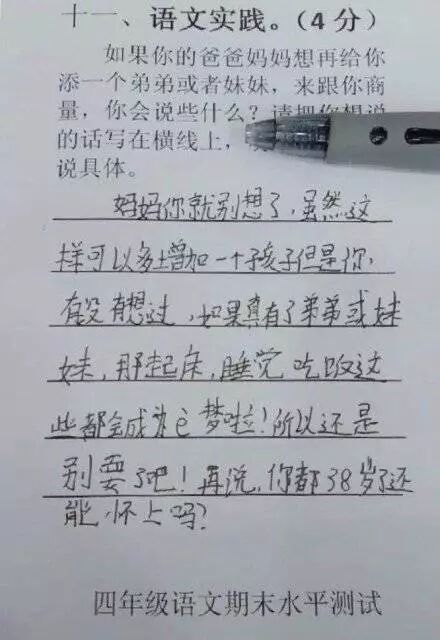 十一、语文实践。（4分）
如果你的爸爸妈妈想再给你
添一个弟弟或者妹妹，来跟你商
量，你会说些什么？请把你想说
的话写在横线上，
说具体。
妈妈你就别想了，虽然这
样可以多增加一个孩子但是你，
有没有想过，如果真有了弟弟或妹
妹，那起床，睡觉吃饭这
些都会成为它梦啦！所以还是
别要了吧！再说，你都38岁了还
能怀上吗？
四年级语文期末水平测试